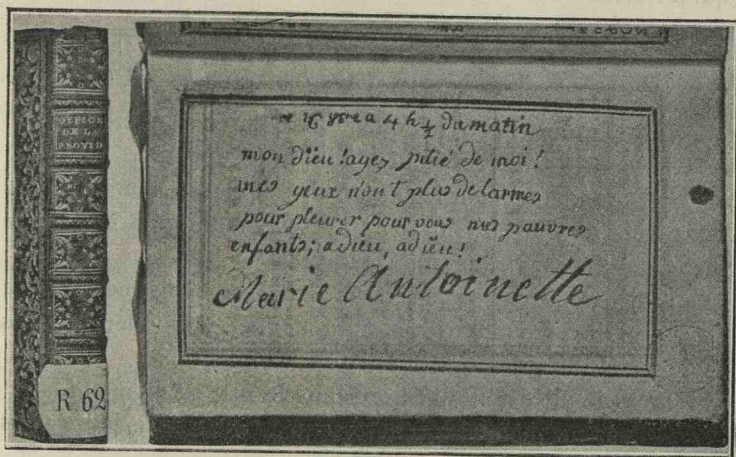 OFFICE
DE LA
PROVID
R. 62
16 8bre a 4 h ½ du matin
mon dieu ! ayez pitié de moi !
mes yeux n'ont plus de larmes
pour pleurer pour vous mes pauvres
enfants ; adieu, adieu !
Marie Antoinette